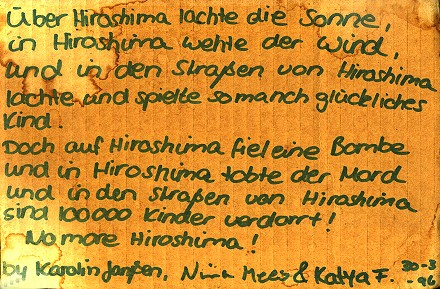 Über Hiroshima lachte die Sonne,
in Hiroshima wehte der Wind,
und in den Straßen von Hiroshima
lachte und spielte so manch glückliches
Kind.
Doch auf Hiroshima fiel eine Bombe
und in Hiroshima tobte der Mord
und in den Straßen von Hiroshima
sind 100000 Kinder verdorrt!
No more Hiroshima!
by Karolin Janßen, Nina & Katya F. 30-3
-96